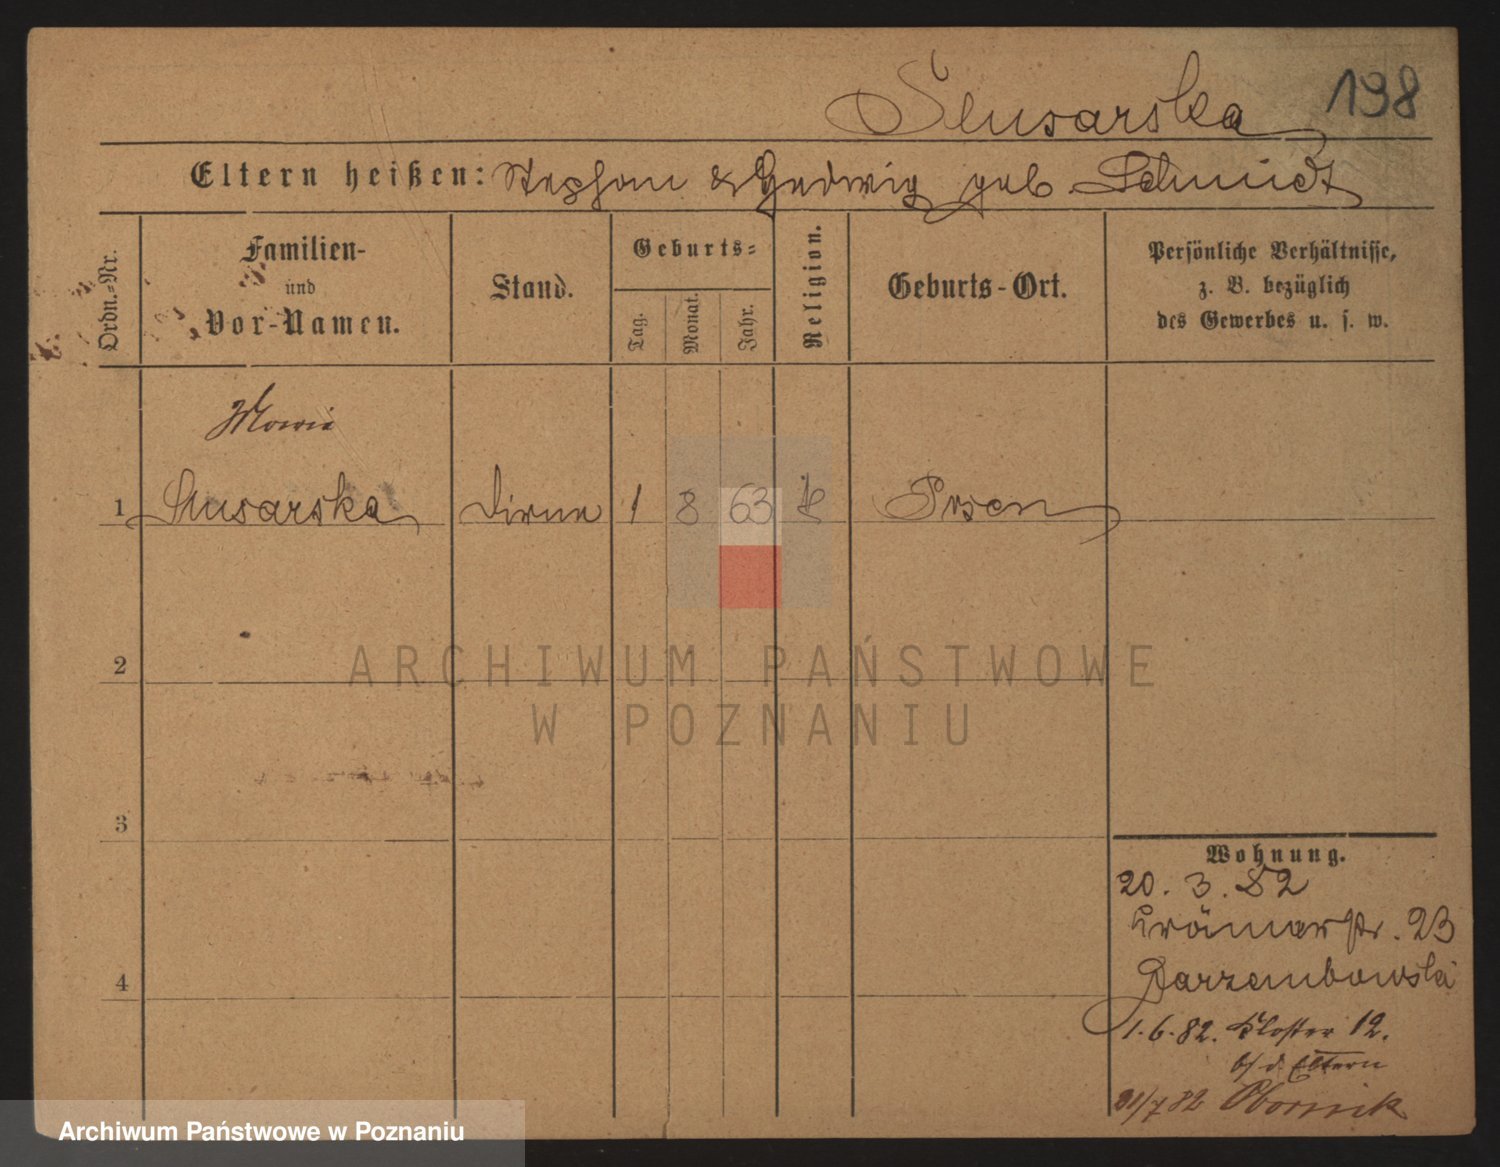 198
Slusarska
Eltern heißen: Stephan & Hedwig geb Schmidt
Ordn.-Nr.
Familien-
und
Vor-Namen.
Stand.
Geburts-
Tag.
Monat.
Jahr.
Religion.
Geburts-Ort.
Persönliche Verhältnisse,
z. B. bezüglich
des Gewerbes u. s. w.
Marie
1 Slusarska Dirne 1 8 63 k Posen
2
3
4
Wohnung.
20. 3. 82
Krämerstr. 23
Darzembowski
1.6.82. Kloster 12.
b/ d. Eltern
31/7 82 Obornik
ARCHIWUM PAŃSTWOWE
W POZNANIU
Archiwum Państwowe w Poznaniu